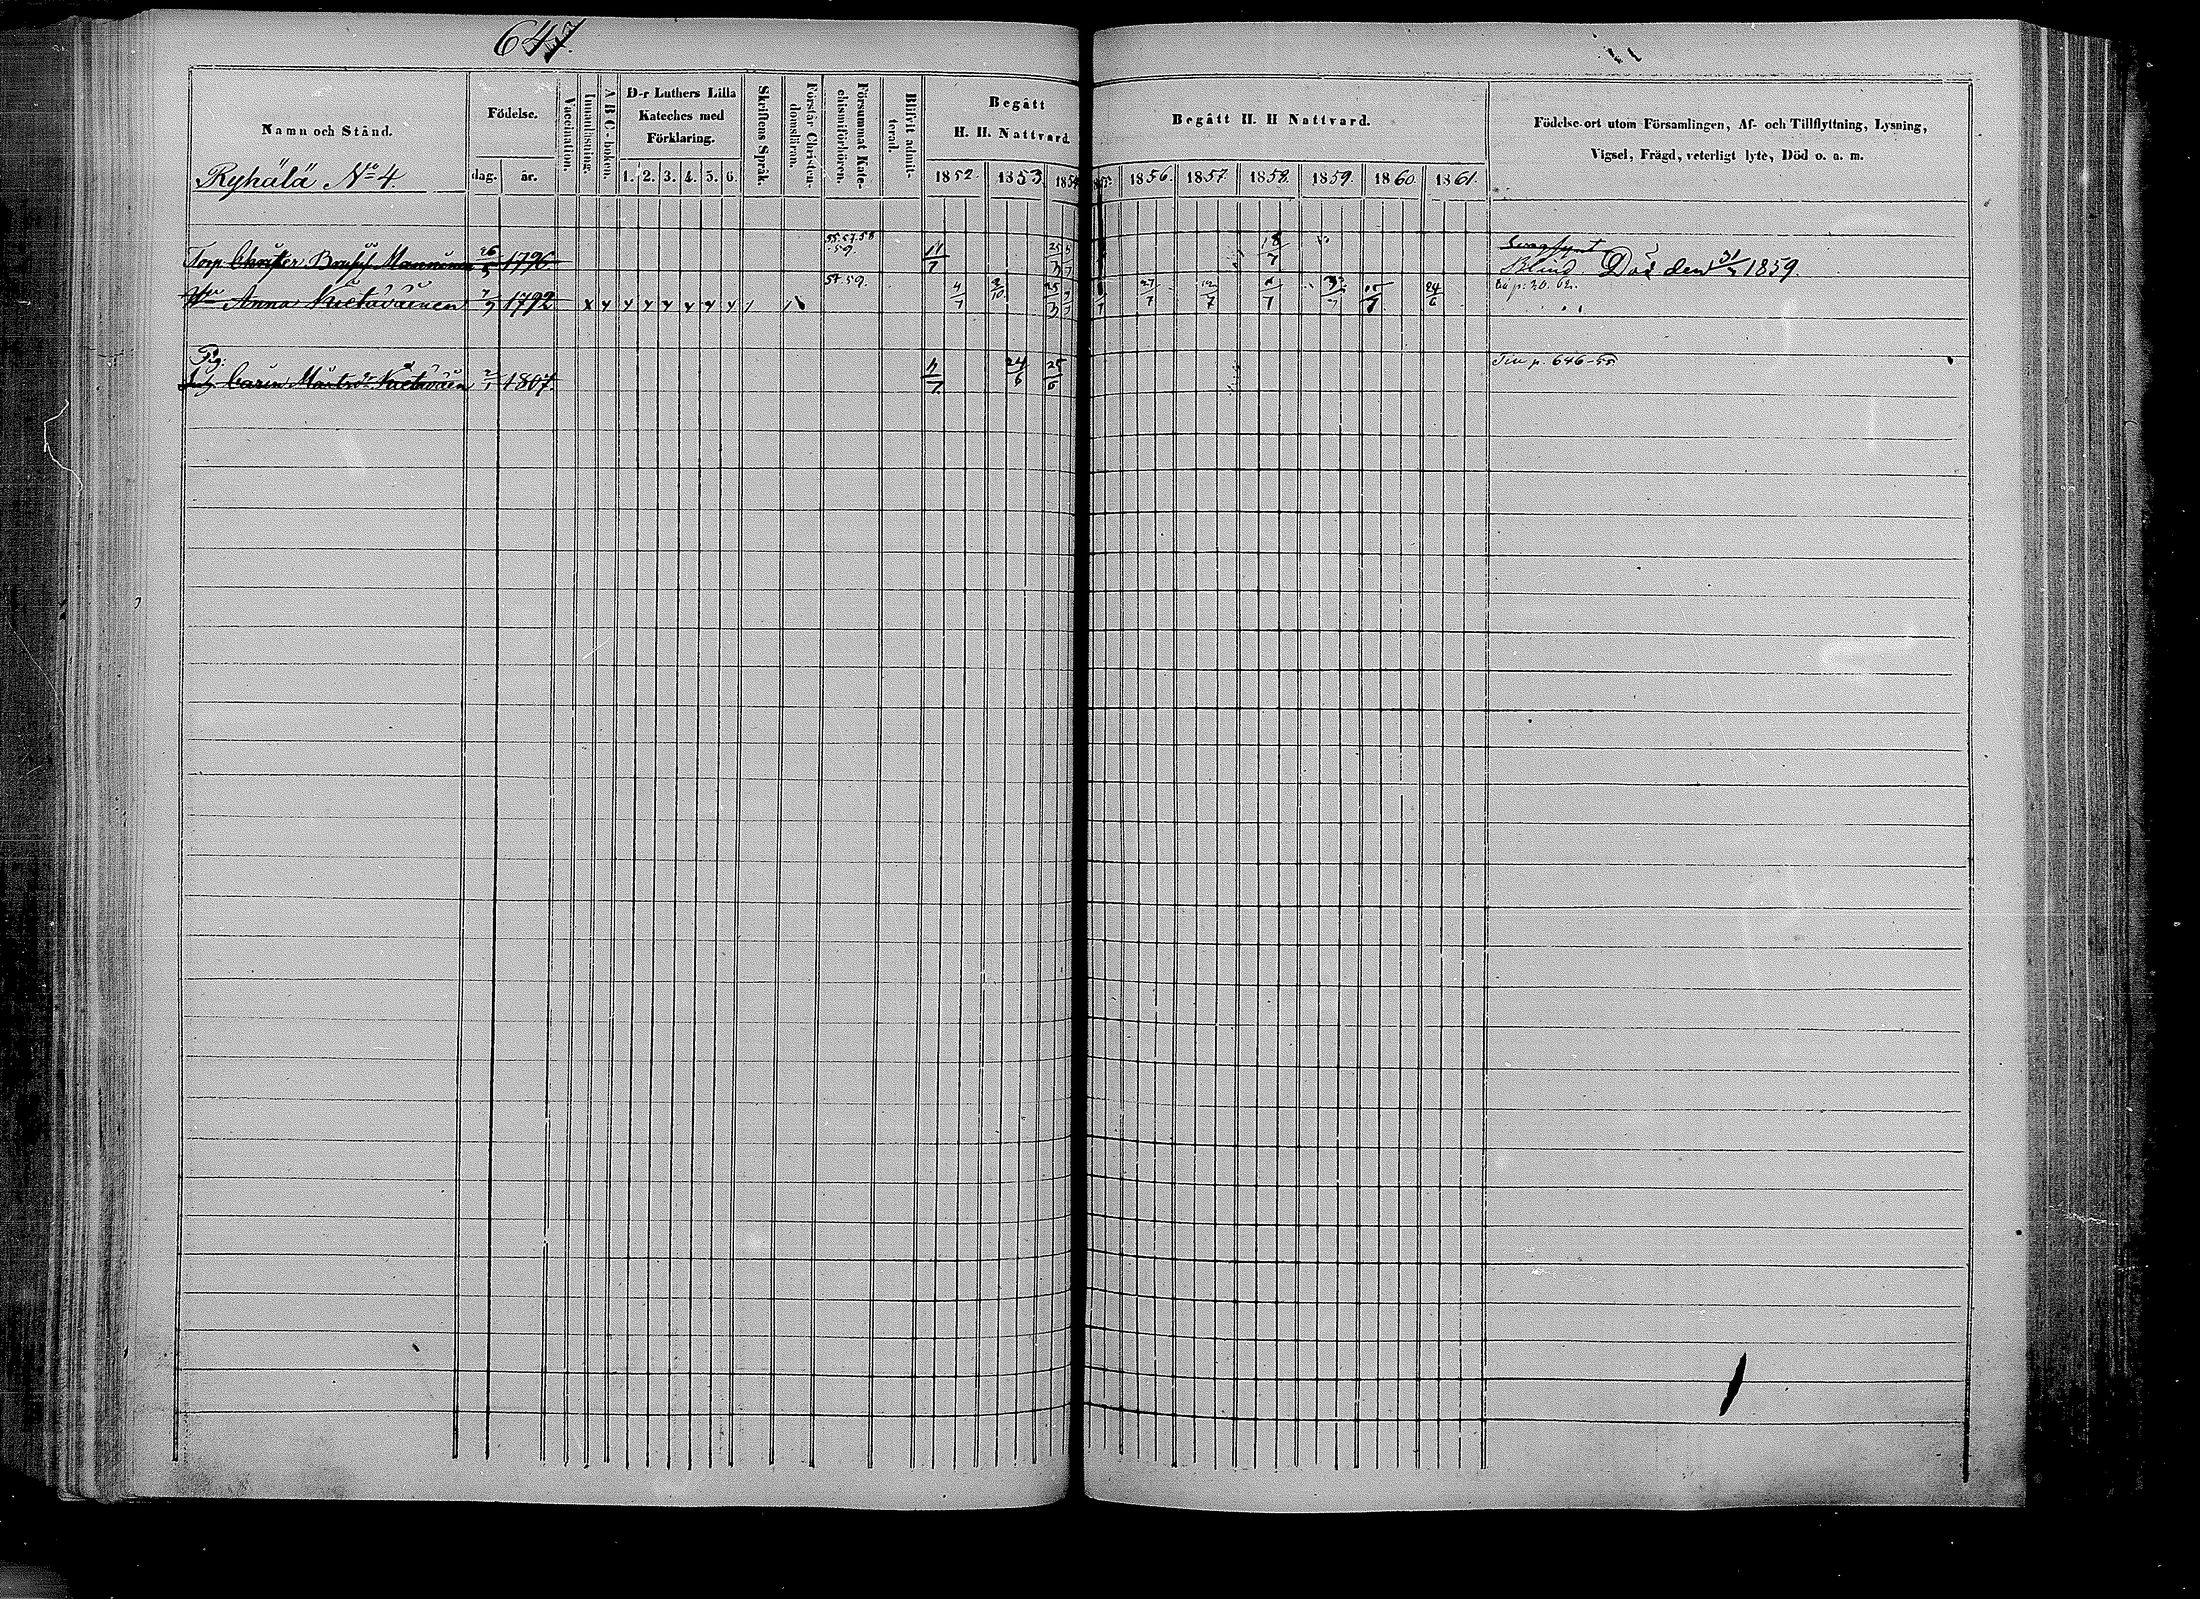 647.
Namn och Stånd.
Födelse.
dag. år.
Vaccination.
Innanläsning.
A B C-boken.
D-r Luthers Lilla Kateches med Förklaring.
1. 2. 3. 4. 5. 6.
Skriftens Språk.
Förstår Christendomsläran.
Försummat Katechismiförhören.
Blifvit admitterad.
Begått H. H. Nattvard.
1852. 1853. 1854
Begått H. H Nattvard.
1855. 1856. 1857. 1858. 1859. 1860. 1861.
Födelse-ort utom Församlingen, Af- och Tillflyttning, Lysning,
Vigsel, Frägd, veterligt lyte, Död o. a. m.
Ryhälä No 4.
Torp Christer Manninen 26/5 1796. 55.57.58 .59. 11/7 25/3 18/7 Blind. Död den 1859.
Anna 1792 x y y y y y y y 57.59. 4/7 2/10 25/3 27/7 12/7 24/6
Pig.
Carin Märtsdr 2/1 1807. 24/6 25/6 p. 646-55